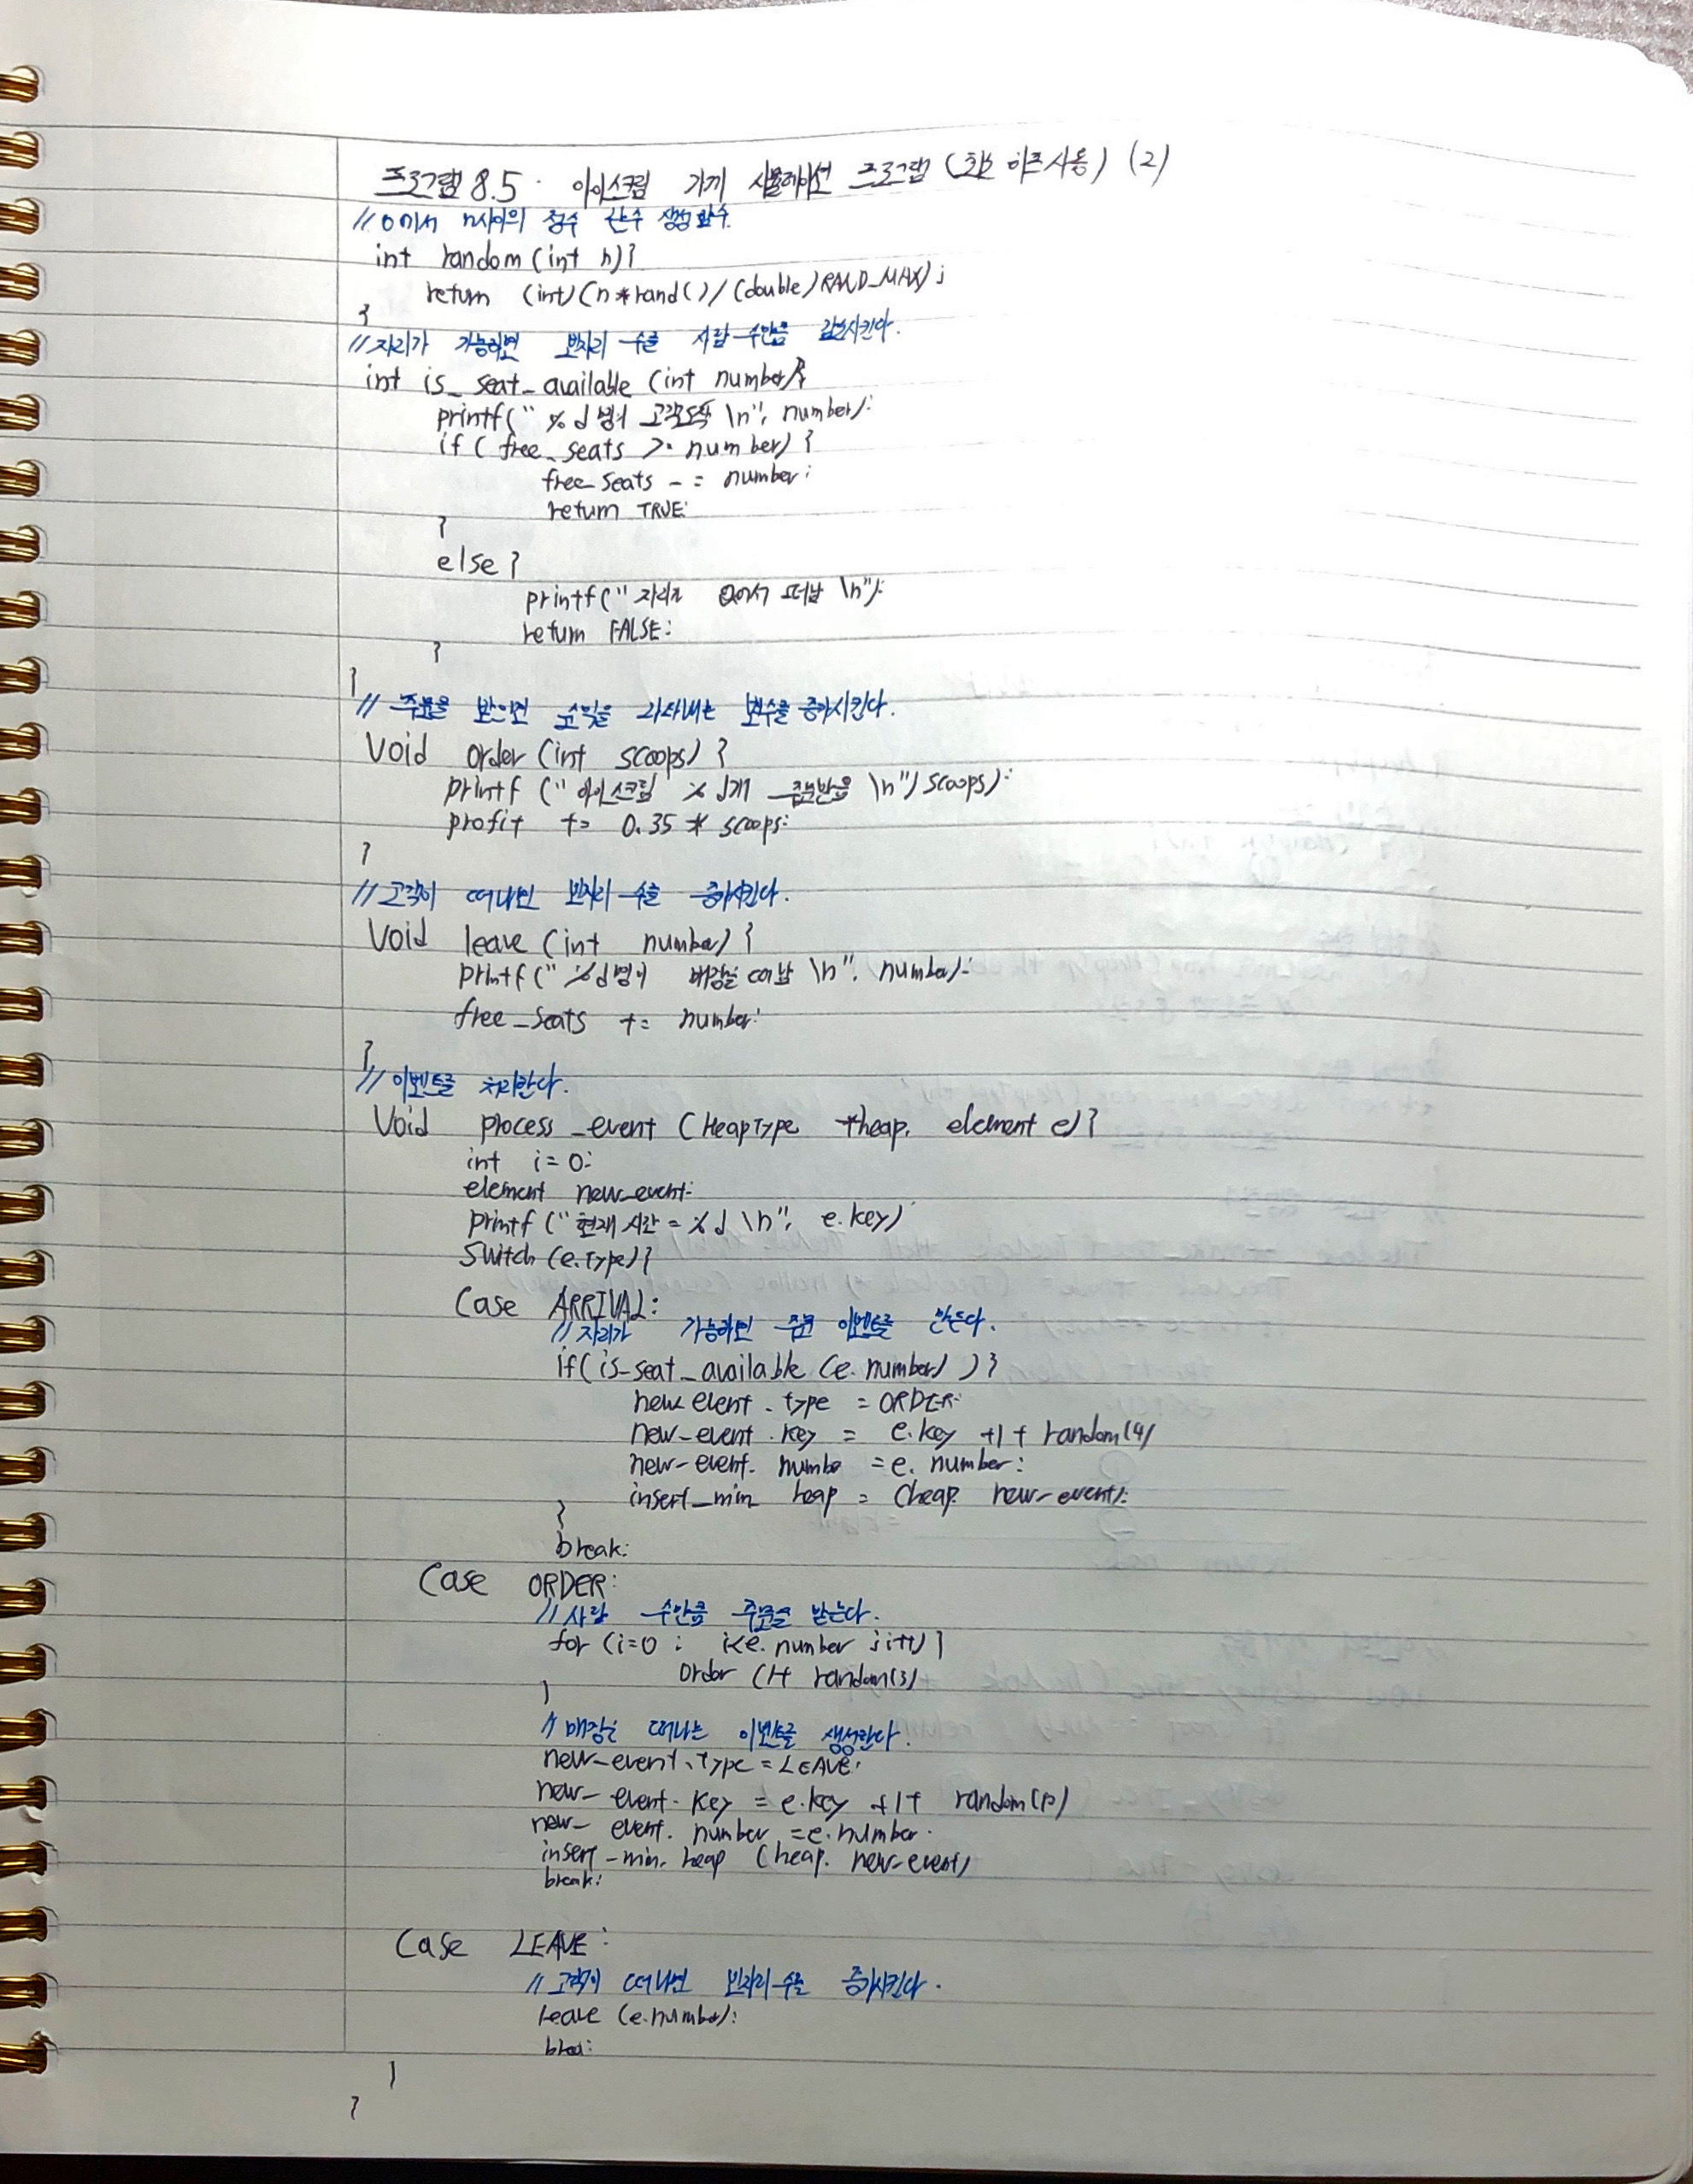 프로그램 8.5. 아이스크림 가게 시뮬레이션 프로그램 (최소 히프 사용) (2)
// 0에서 n사이의 정수 난수 생성 함수.
int random (int n){
return (int)(n*rand()/(double)RAND_MAX);
}
// 자리가 가능하면 빈자리 수를 사람 수만큼 감소시킨다.
int is_seat_available (int number){
printf(" %d명의 고객도착 \n", number);
if( free_seats >= number) {
free_seats -= number;
return TRUE;
}
else {
printf(" 자리가 없어서 떠남 \n");
return FALSE;
}
}
// 주문을 받으면 순익을 나타내는 변수를 증가시킨다.
Void order (int scoops) {
printf (" 아이스크림 %d개 주문받음 \n", scoops);
profit += 0.35 * scoops;
}
// 고객이 떠나면 빈자리 수를 증가시킨다.
Void leave (int number) {
printf(" %d명이 매장을 떠남 \n", number);
free_seats += number;
}
// 이벤트를 처리한다.
Void process_event (HeapType *heap, element e) {
int i=0;
element new_event;
printf ("현재 시간 = %d \n", e.key)
Switch (e.type){
Case ARRIVAL:
// 자리가 가능하면 주문 이벤트를 만든다.
if( is_seat_available (e. number) ) {
new event . type = ORDER;
new_event . key = e.key +1+ random(4)
new_event. numbe = e. number;
insert_min heap = (heap, new_event);
}
break;
Case ORDER:
// 사람 수만큼 주문을 받는다.
for (i=0 ; i<e. number ;i++) {
Order (1+ random(3)
}
// 매장을 떠나는 이벤트를 생성한다.
new_event.type = LEAVE;
new_ event. key = e.key +1+ random(10)
new_ event. number = e.number.
insert_min_heap (heap, new_event)
break;
Case LEAVE:
// 고객이 떠나면 빈자리 수를 증가시킨다.
leave (e.number);
}
}